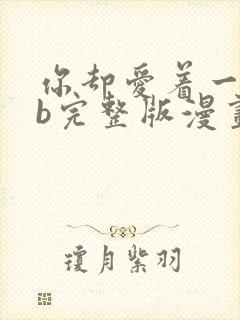 你却爱着一
b完整版漫畫
瓊月紫羽